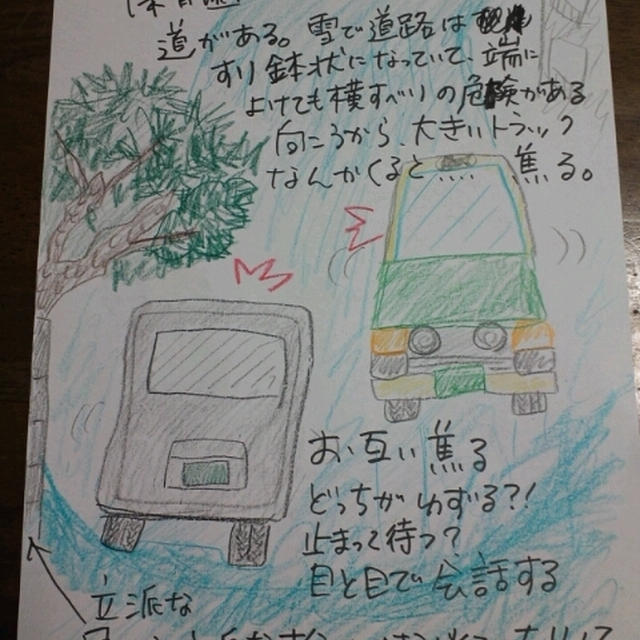 道がある。雪で道路は
すり鉢状になっていて、端に
よけても横すべりの危険がある
向こうから、大きいトラック
なんかくると 焦る。
お互い焦る
どっちがゆずる?!
止まって待つ?
目と目で会話する
立派な